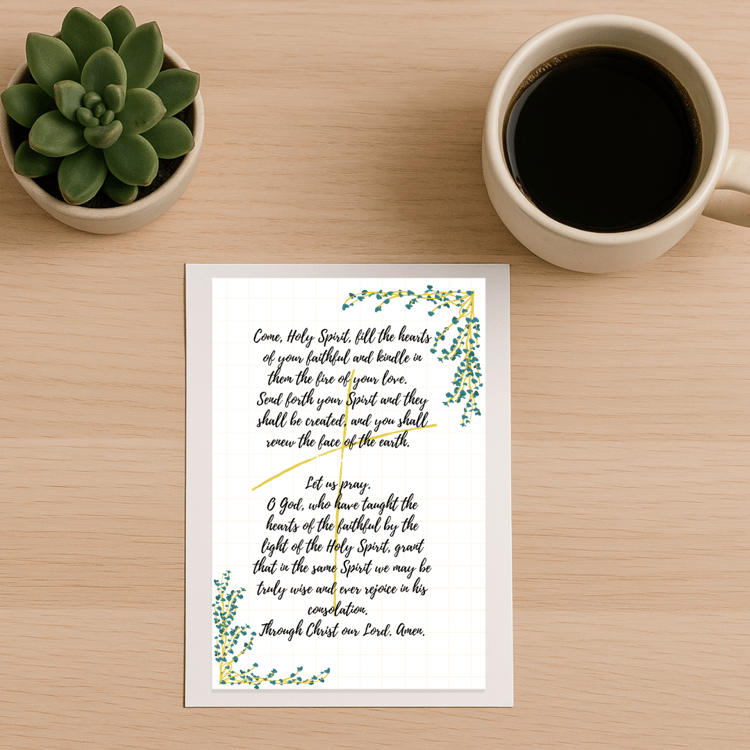 Come, Holy Spirit, fill the hearts
of your faithful and kindle in
them the fire of your love.
Send forth your Spirit and they
shall be created, and you shall
renew the face of the earth.
Let us pray.
O God, who have taught the
hearts of the faithful by the
light of the Holy Spirit, grant
that in the same Spirit we may be
truly wise and ever rejoice in his
consolation.
Through Christ our Lord. Amen.